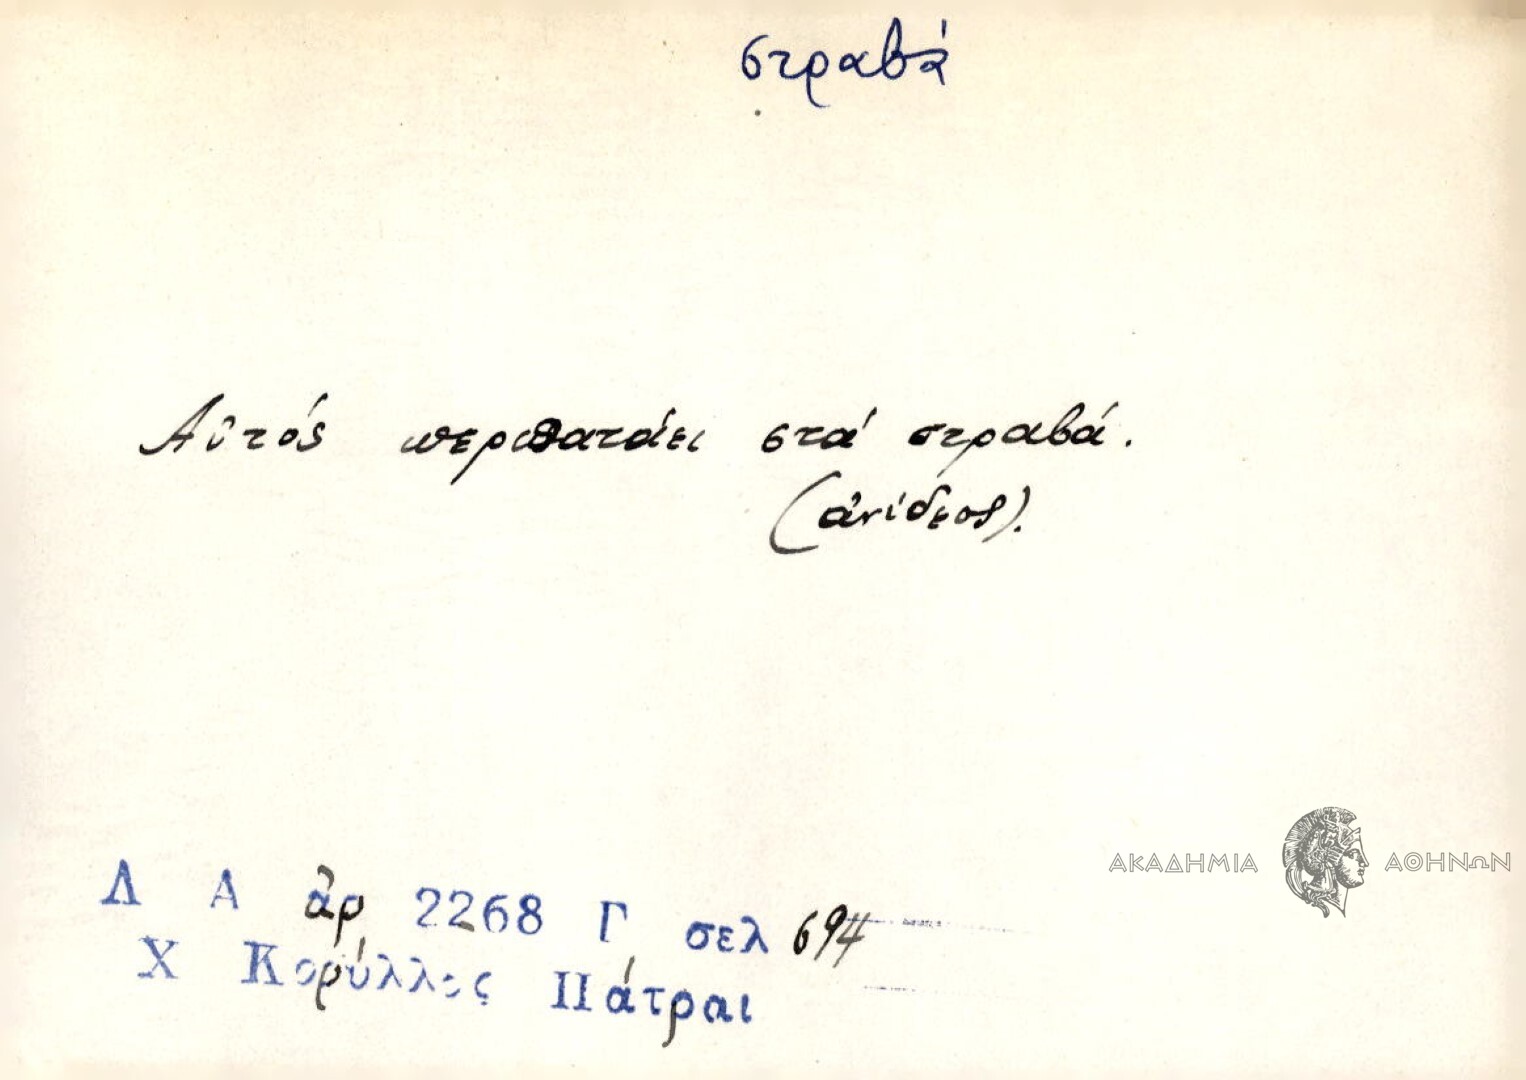 στραβά
Αὐτός περιπατάει στά στραβά.
(ἀνίδεος).
ΑΚΑΔΗΜΙΑ ΑΘΗΝΩΝ
Λ Α ἀρ 2268 Γ σελ 694
Χ Κορύλλος Πάτραι